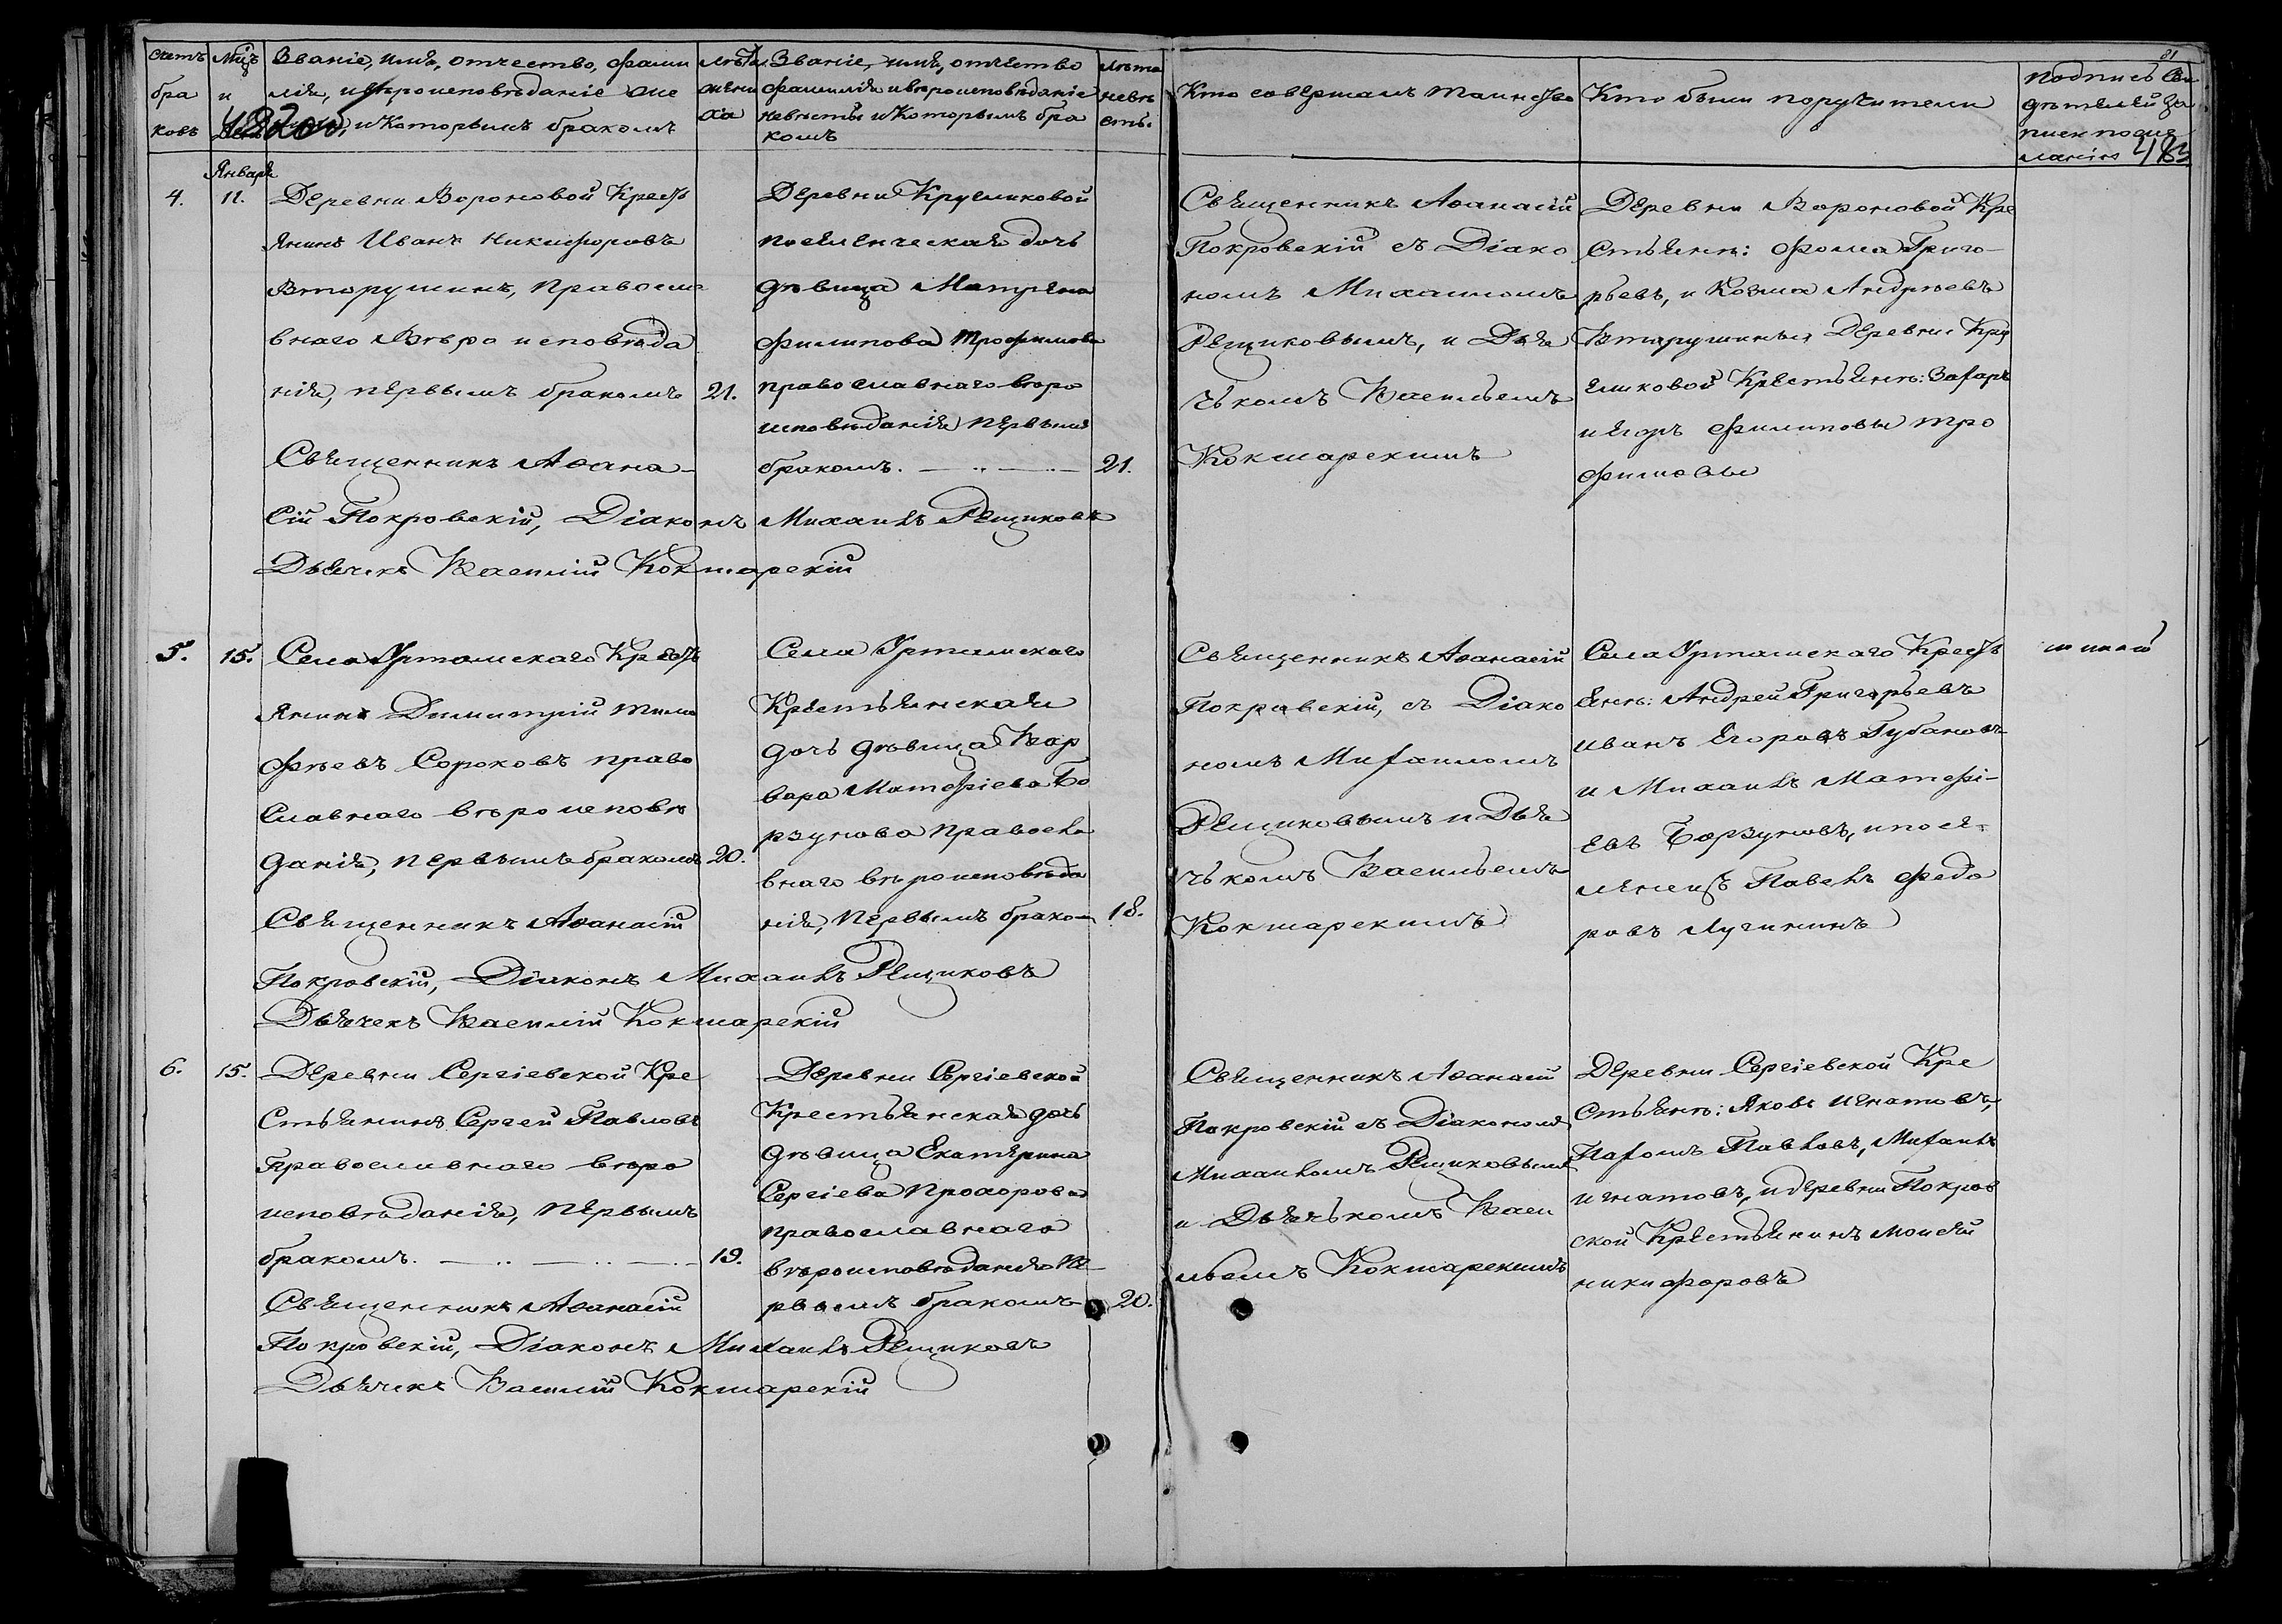 81
Счетъ
бра
ковъ
Мцъ
и
482
Званіе, имя, отчество, фами
лія, и вѣроисповѣданіе же
и которымъ бракомъ
Лѣта
жени
ха
Званіе, имя, отчество
фамилія и вѣроисповѣданіе
невѣсты и Которымъ бра
комъ
Лѣта
невѣ
сты.
Кто совершалъ таинство
Кто были поручители
Подпись Сви
дѣтелей За
писи по же
ланію 483
Января
4.
11.
Деревни Вороновой Кресть
янинъ Иванъ Никифоровъ
Вторушинъ, Правосла
внаго Вѣро исповѣда
нія, первымъ бракомъ
21.
Священникъ Аѳана-
сій Покровскій, Діаконъ Михаилъ Рещиковъ
Дьячекъ Василій Кокшарскій
Деревни Кругликовой
поселенческая дочь
дѣвица Матрена
Филипова Трофимова
православнаго вѣро
исповѣданія первымъ
бракомъ.
21.
Священникъ Аѳанасій
Покровскій съ Діако
номъ Михаиломъ
Рещиковымъ, и Дья
чькомъ Васильемъ
Кокшарскимъ
Деревни Вороновой Кре
стьяне: Фома Григо-
рьевъ, и Козма Андреевъ
Вторушины, Деревни Кру
гликовой Крестьяне: Захаръ
и Егоръ Филиповы Тро
фимовы
5.
15.
Села Уртамскаго Кресть
янинъ Димитрій Тимо
фѣевъ Сороковъ право
славнаго вѣроисповѣ
данія, первымъ бракомъ
20.
Священникъ Аѳанасій
Покровскій, Діаконъ Михаилъ Рещиковъ
Дьячекъ Василій Кокшарскій
Села Уртамскаго
Крестьянская
дочь дѣвица Вар
вара Матфіева Бо
рзунова Правосла
внаго вѣроисповѣда
нія, Первымъ брако-
18.
Священникъ Аѳанасій
Покровскій, съ Діако
номъ Михаиломъ
Рещиковымъ и Дья
чькомъ Васильемъ
Кокшарскимъ
Села Уртамскаго Кресть
яне: Андрей Григорьевъ
Иванъ Егоровъ Губановъ
и Михаилъ Матфі-
евъ Борзуновъ, и посе-
ленецъ Павелъ Федо
ровъ Лучининъ
6.
15.
Деревни Сергіевской Кре
стьянинъ Сергей Павловъ
Православнаго вѣро
исповѣданія, первымъ
бракомъ.
19.
Священникъ Аѳанасій
Покровскій, Діаконъ Михаилъ Рещиковъ
Дьячекъ Василій Кокшарскій
Деревни Сергіевской
Крестьянская дочь
дѣвица Екатерина
Сергіева Прохорова
православнаго
вѣроисповѣданія Пе-
рвымъ бракомъ
20.
Священникъ Аѳанасій
Покровскій съ Діакономъ
Михаиломъ Рещиковымъ
и Дьячькомъ Васи
льемъ Кокшарскимъ
Деревни Сергіевской Кре
стьяне: Яковъ Игнатовъ,
Пахомъ Павловъ, Михаилъ
Игнатовъ, и деревни Покров
ской Крестьянинъ Моисей
Никифоровъ